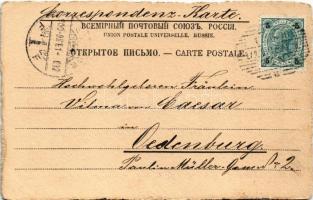 Correspondenz-Karte.
ВСЕМІРНЫЙ ПОЧТОВЫЙ СОЮЗЪ. РОССІЯ.
UNION POSTALE UNIVERSELLE. RUSSIE.
ОТКРЫТОЕ ПИСЬМО. — CARTE POSTALE.
Hochwohlgeboren Fräulein
Vilma von Caesar
in
Oedenburg
Paulin Müller-Gasse № 2